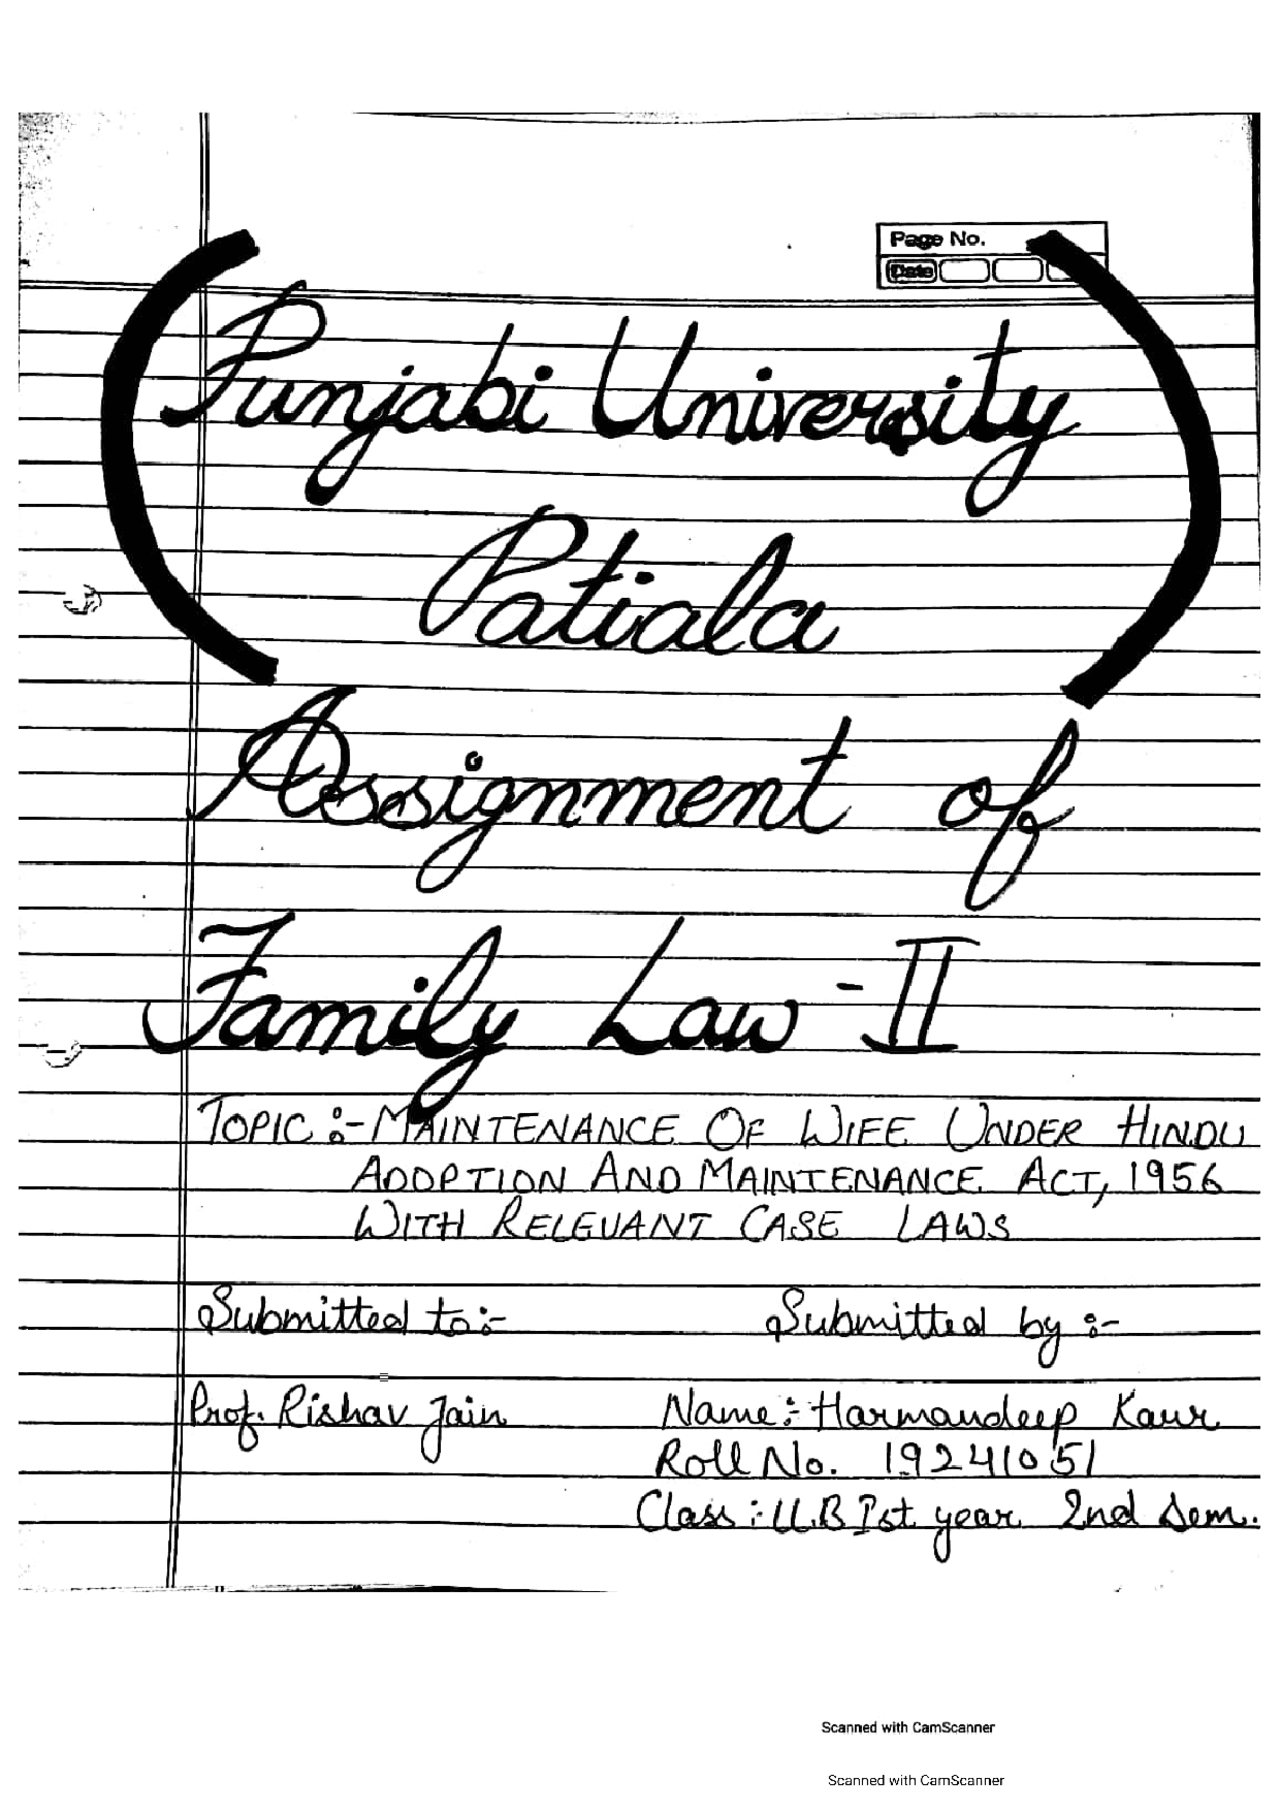 Page No.
Date
Punjabi University
Patiala
Assignment of
Family Law - II
TOPIC :- MAINTENANCE OF WIFE UNDER HINDU
ADOPTION AND MAINTENANCE ACT, 1956
WITH RELEVANT CASE LAWS
Submitted to :- Submitted by :-
Prof. Rishav Jain Name :- Harmandeep Kaur
Roll No. 19241051
Class :- LL.B Ist year 2nd Sem.
Scanned with CamScanner
Scanned with CamScanner